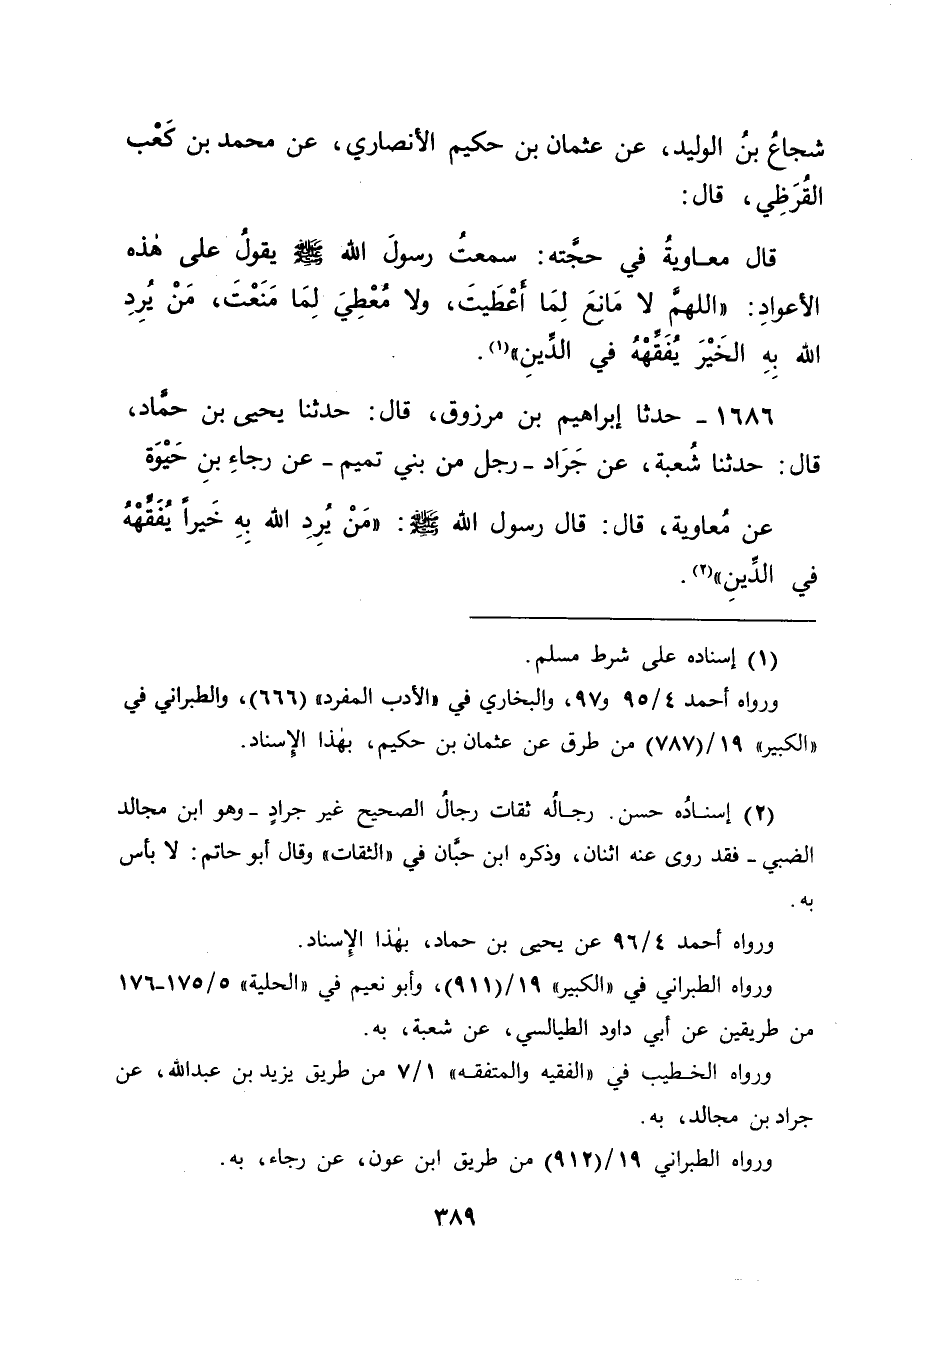 شجاعُ بنُ الوليد، عن عثمان بن حكيم الأنصاري، عن محمد بن كَعْب
القُرَظِي، قال:
قال معـاويةُ في حجَّته: سمعتُ رسولَ الله ﷺ يقولُ على هٰذه
الأعوادِ: «اللهمَّ لا مَانِعَ لِمَا أَعْطَيتَ، ولا مُعْطِيَ لِمَا مَنَعْتَ، مَنْ يُرِدِ
الله بِهِ الخَيْرَ يُفَقِّهْهُ في الدِّينِ»(١).
١٦٨٦ ـ حدثا إبراهيم بن مرزوق، قال: حدثنا يحيى بن حمَّاد،
قال: حدثنا شُعبة، عن جَرَاد ـ رجل من بني تميم ـ عن رجاءِ بنِ حَيْوَة
عن مُعاوية، قال: قال رسول الله ﷺ: «مَنْ يُرِدِ الله بِهِ خَيراً يُفَقِّهْهُ
في الدِّينِ»(٢).
(١) إسناده على شرط مسلم.
ورواه أحمد ٩٥/٤ و٩٧، والبخاري في «الأدب المفرد» (٦٦٦)، والطبراني في
«الكبير» ١٩/(٧٨٧) من طرق عن عثمان بن حكيم، بهٰذا الإسناد.
(٢) إسنـادُه حسن. رجـالُه ثقات رجالُ الصحيح غير جرادٍ ـ وهو ابن مجالد
الضبي ـ فقد روى عنه اثنان، وذكره ابن حبَّان في «الثقات» وقال أبو حاتم: لا بأس
به.
ورواه أحمد ٩٦/٤ عن يحيى بن حماد، بهٰذا الإسناد.
ورواه الطبراني في «الكبير» ١٩/(٩١١)، وأبو نعيم في «الحلية» ١٧٥/٥ـ١٧٦
من طريقين عن أبي داود الطيالسي، عن شعبة، به.
ورواه الخـطيب في «الفقيه والمتفقـه» ٧/١ من طريق يزيد بن عبدالله، عن
جراد بن مجالد، به.
ورواه الطبراني ١٩/(٩١٢) من طريق ابن عون، عن رجاء، به.
٣٨٩